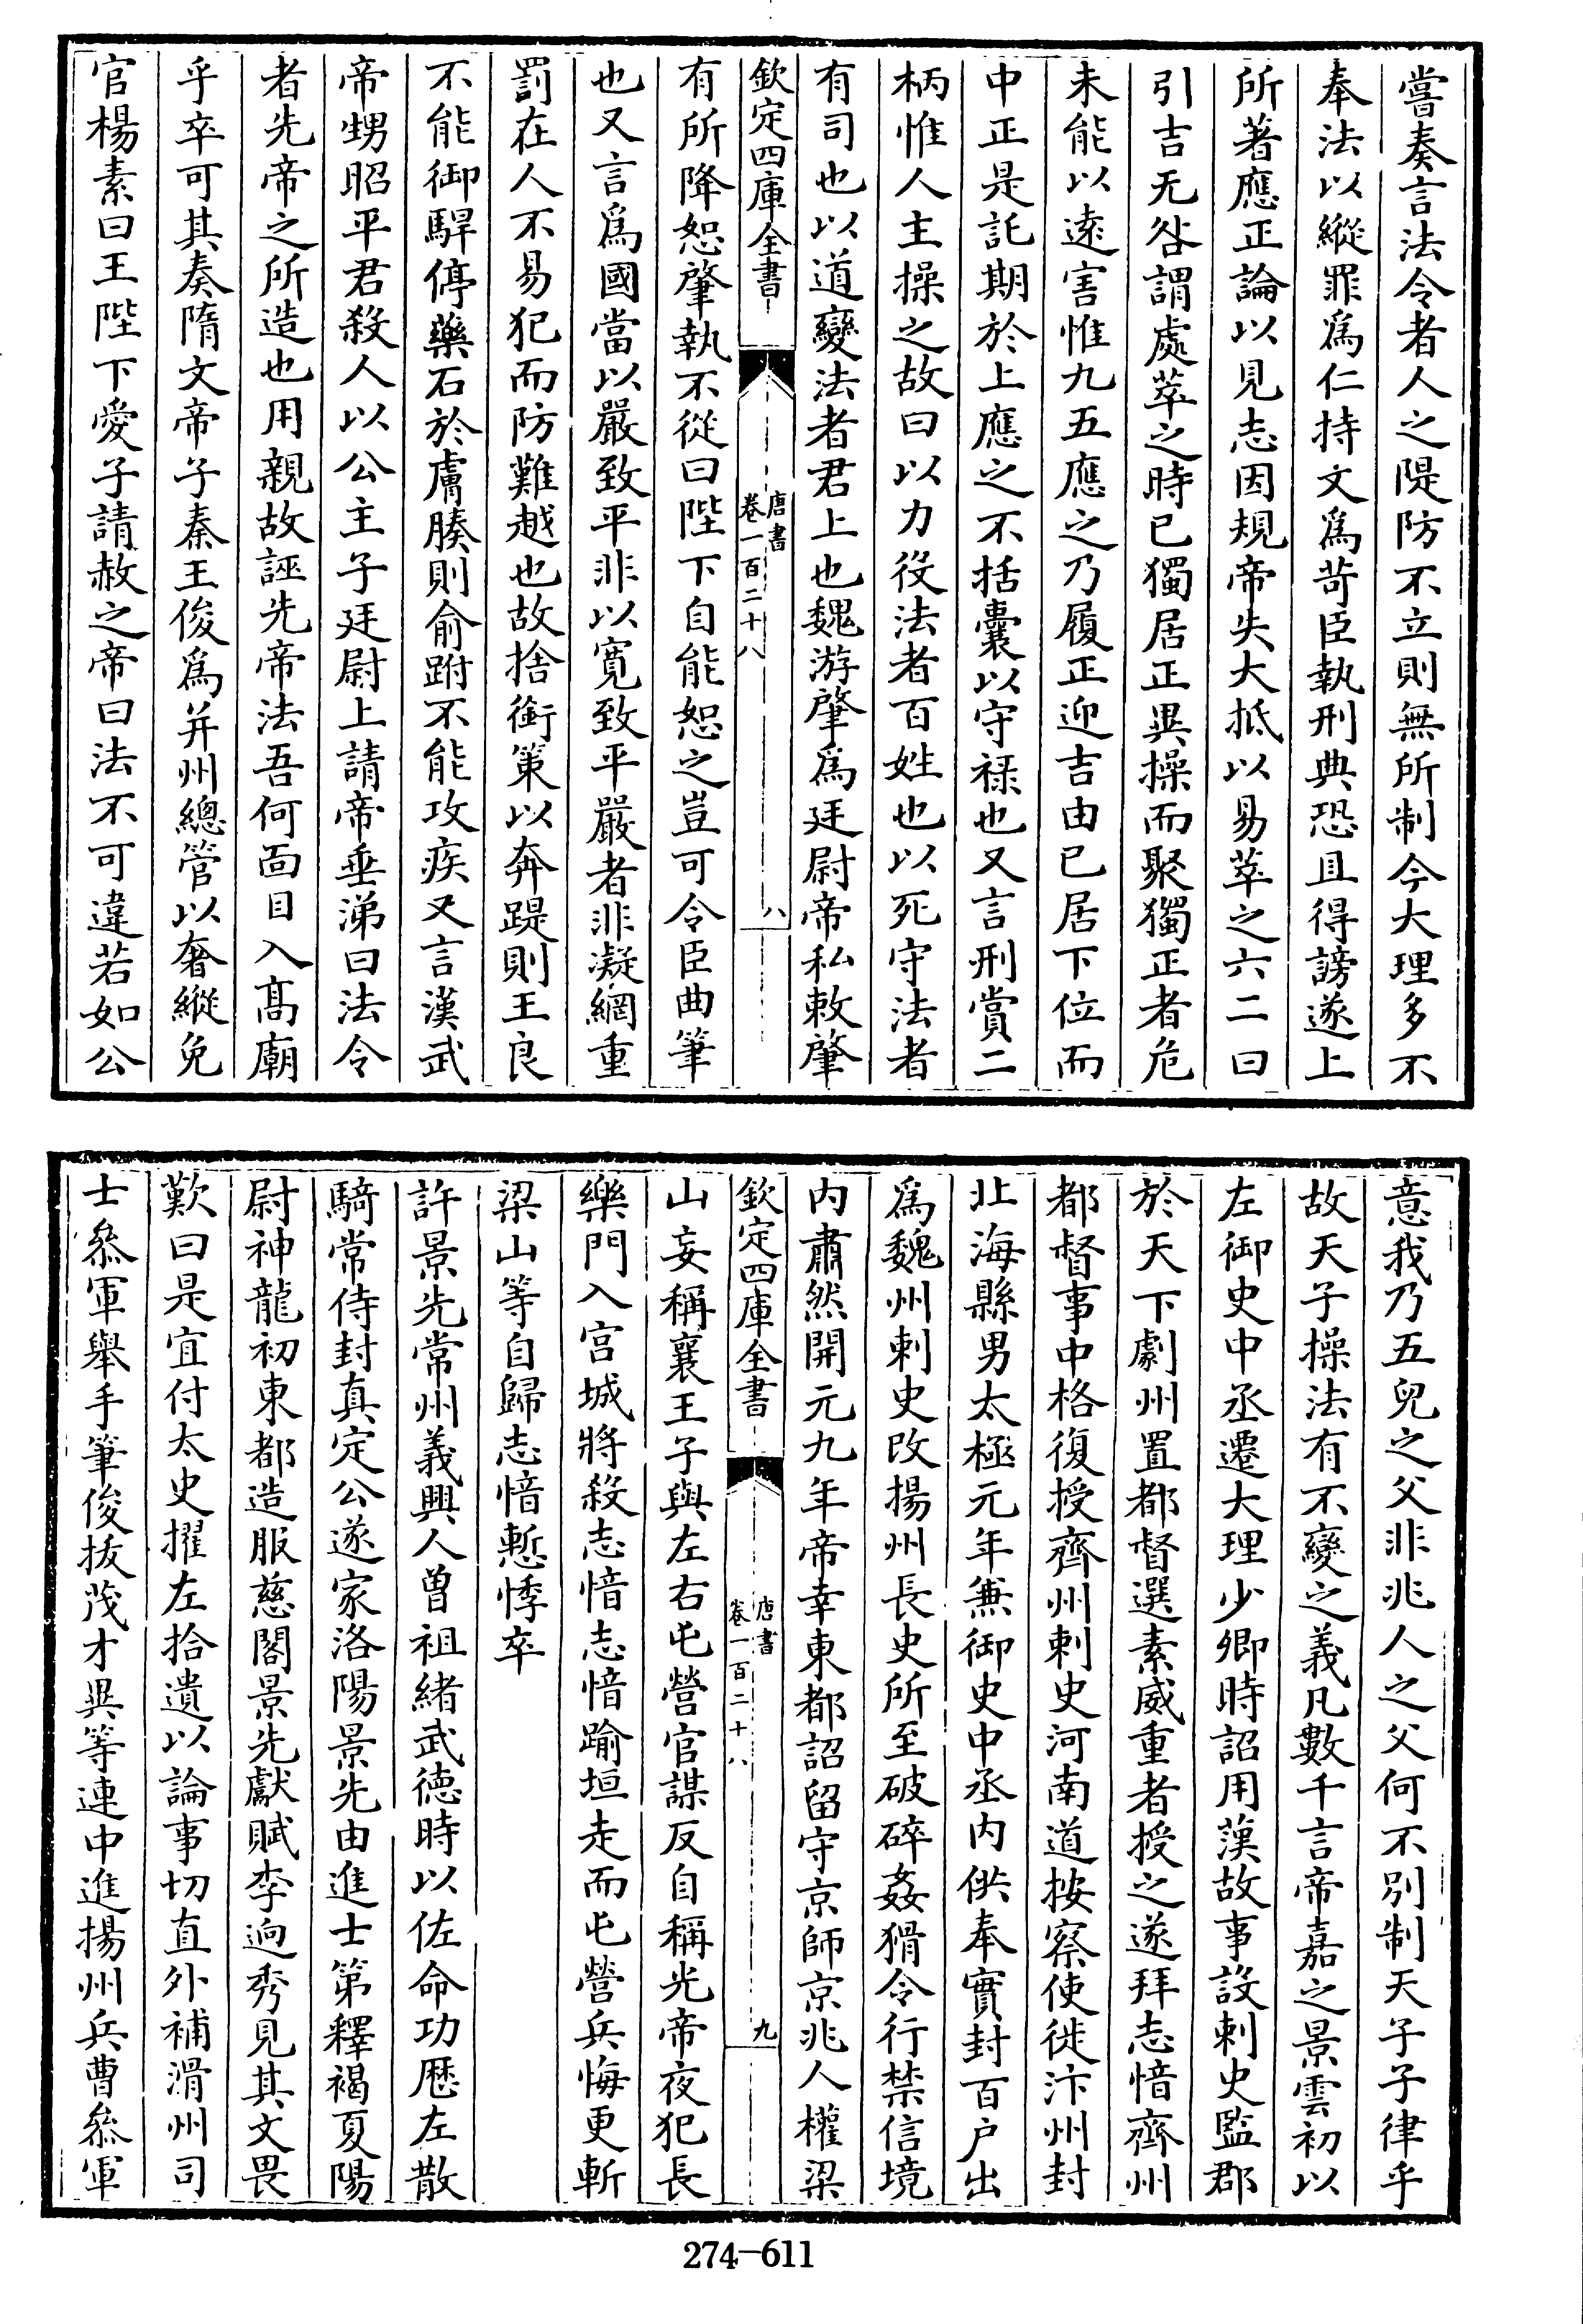 嘗奏言法令者人之隄防不立則無所制今大理多不
奉法以縱罪爲仁持文爲苛臣執刑典恐且得謗遂上
所著應正論以見志因規帝失大抵以易萃之六二曰
引吉无咎謂處萃之時已獨居正異操而聚獨正者危
未能以遠害惟九五應之乃履正迎吉由已居下位而
中正是託期於上應之不括囊以守祿也又言刑賞二
柄惟人主操之故曰以力役法者百姓也以死守法者
有司也以道變法者君上也魏游肇爲廷尉帝私敕肇
欽定四庫全書
唐書
卷一百二十八
八
有所降恕肇執不從曰陛下自能恕之豈可令臣曲筆
也又言爲國當以嚴致平非以寛致平嚴者非凝網重
罰在人不易犯而防難越也故捨銜策以奔踶則王良
不能御駻停藥石於膚腠則俞跗不能攻疾又言漢武
帝甥昭平君殺人以公主子廷尉上請帝垂涕曰法令
者先帝之所造也用親故誣先帝法吾何面目入髙廟
乎卒可其奏隋文帝子秦王俊爲并州總管以奢縱免
官楊素曰王陛下愛子請赦之帝曰法不可違若如公
意我乃五兒之父非兆人之父何不別制天子子律乎
故天子操法有不變之義凡數千言帝嘉之景雲初以
左御史中丞遷大理少卿時詔用漢故事設刺史監郡
於天下劇州置都督選素威重者授之遂拜志愔齊州
都督事中格復授齊州刺史河南道按察使徙汴州封
北海縣男太極元年兼御史中丞内供奉實封百户出
爲魏州刺史改揚州長史所至破碎姦猾令行禁信境
内肅然開元九年帝幸東都詔留守京師京兆人權梁
欽定四庫全書
唐書
卷一百二十八
九
山妄稱襄王子與左右屯營官謀反自稱光帝夜犯長
樂門入宫城將殺志愔志愔踰垣走而屯營兵悔更斬
梁山等自歸志愔慙悸卒
許景先常州義興人曾祖緒武徳時以佐命功歴左散
騎常侍封真定公遂家洛陽景先由進士第釋褐夏陽
尉神龍初東都造服慈閣景先獻賦李迥秀見其文畏
歎曰是宜付太史擢左拾遺以論事切直外補滑州司
士叅軍舉手筆俊拔茂才異等連中進揚州兵曹叅軍
274-611